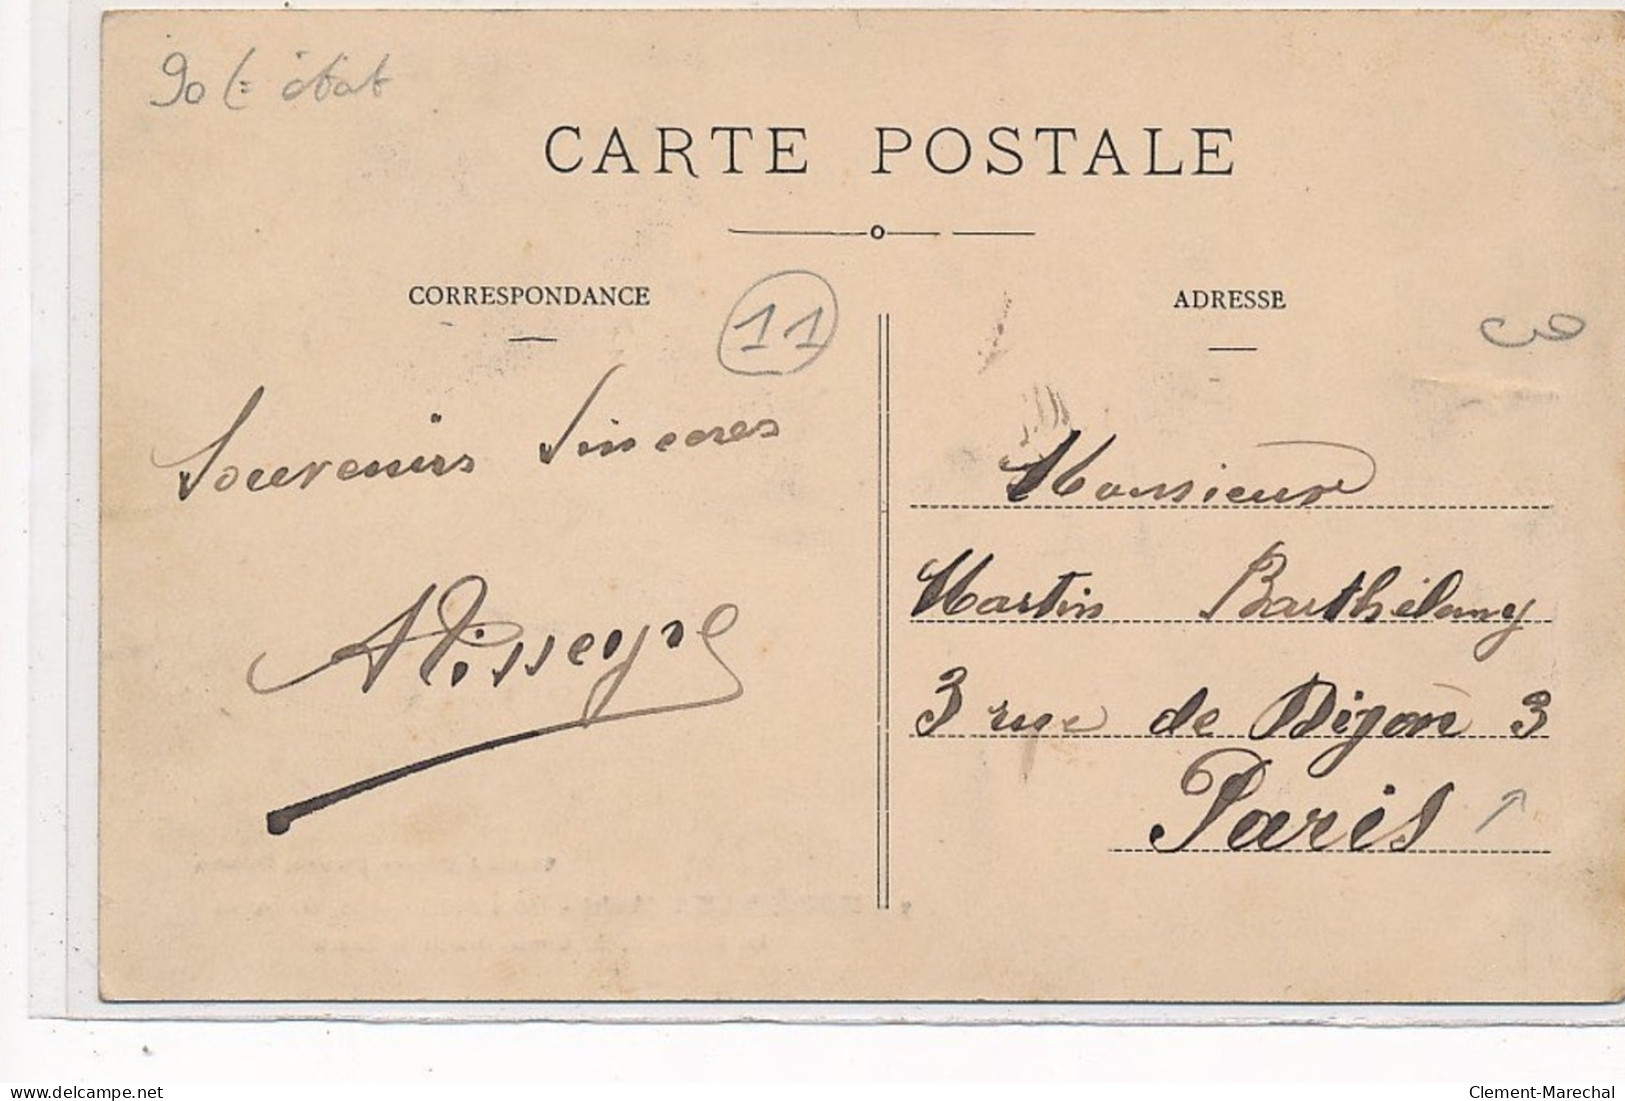 état
CARTE POSTALE
CORRESPONDANCE
11
ADRESSE
Souvenirs Sincères
Monsieur
Martin Barthélemy
3 rue de Dijon 3
Paris
delcampe.net
Clement-Marechal